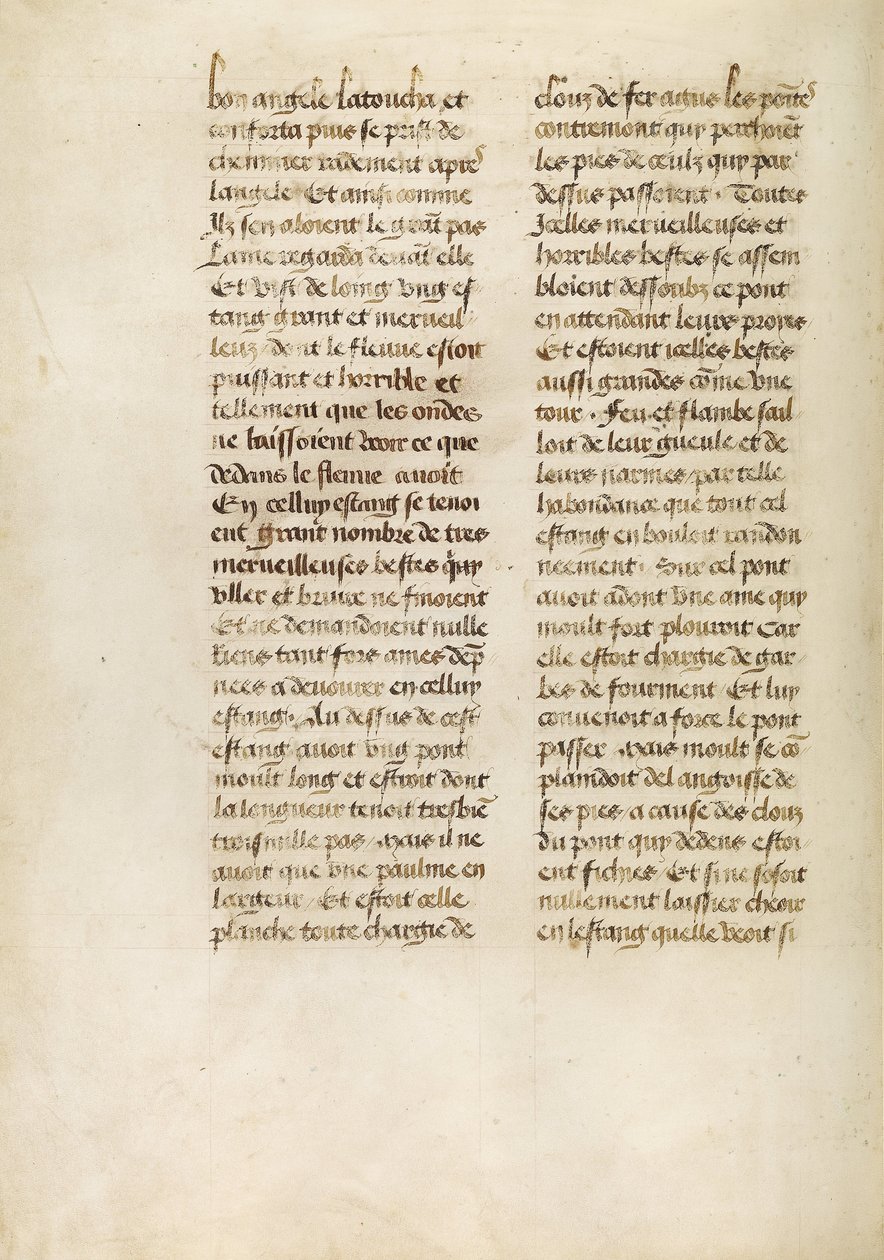 bon angele latoucha et
conforta puis se prist de
cheminer radement apres
langele Et ainsi comme
Ilz sen aloient le grãt pas
Lame regarda deuãt elle
Et vist de loing vng es
tang grant et merueil
leux / dont le fleuue estoit
puissant et horrible et
tellement que les ondes
ne laissoient veoir ce que
dedans le fleuue auoit
En celluy estang se tenoi
ent grant nombre de tres
merueilleuses bestes quy
vller et bruire ne finoient
Et ne demandoient nulle
riens tant fors ames dãp
nees a deuourer en celluy
estang . Au dessus de cest
estang auoit vng pont
moult long et estroit dont
la longueur tenoit tresbiẽ
trois mille pas / Mais il ne
auoit que vne paulme en
largeur / Et estoit celle
planche toute chargie de
clouz de fer agus les poĩtes
contremont quy perchoiẽt
les pies de ceulz quy par
dessus passoient . Toutes
Icelles merueilleuses et
horribles bestes se assem
bloient dessoubz ce pont
en attendant leurs proyes
Et estoient icelles bestes
aussi grandes cõme vne
tour . Feu et flambe sail
loit de leur gueule et de
leurs narines / par telle
habondance que tout cel
estang en bouloit randon
neement . Sur cel pont
auoit adont vne ame quy
moult fort plouroit Car
elle estoit chargie de gar
bes de fourment / Et luy
conuenoit a force le pont
passer . Mais moult se cõ
plaindoit del angoisse de
ses pies / a cause des clouz
du pont quy dedens estoi
ent fichies / Et si ne sosoit
nullement laissier cheoir
en lestang quelle veoit si